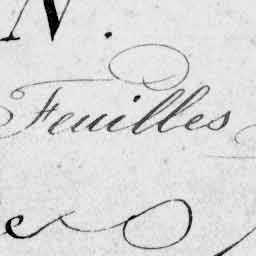 N.
Feuilles